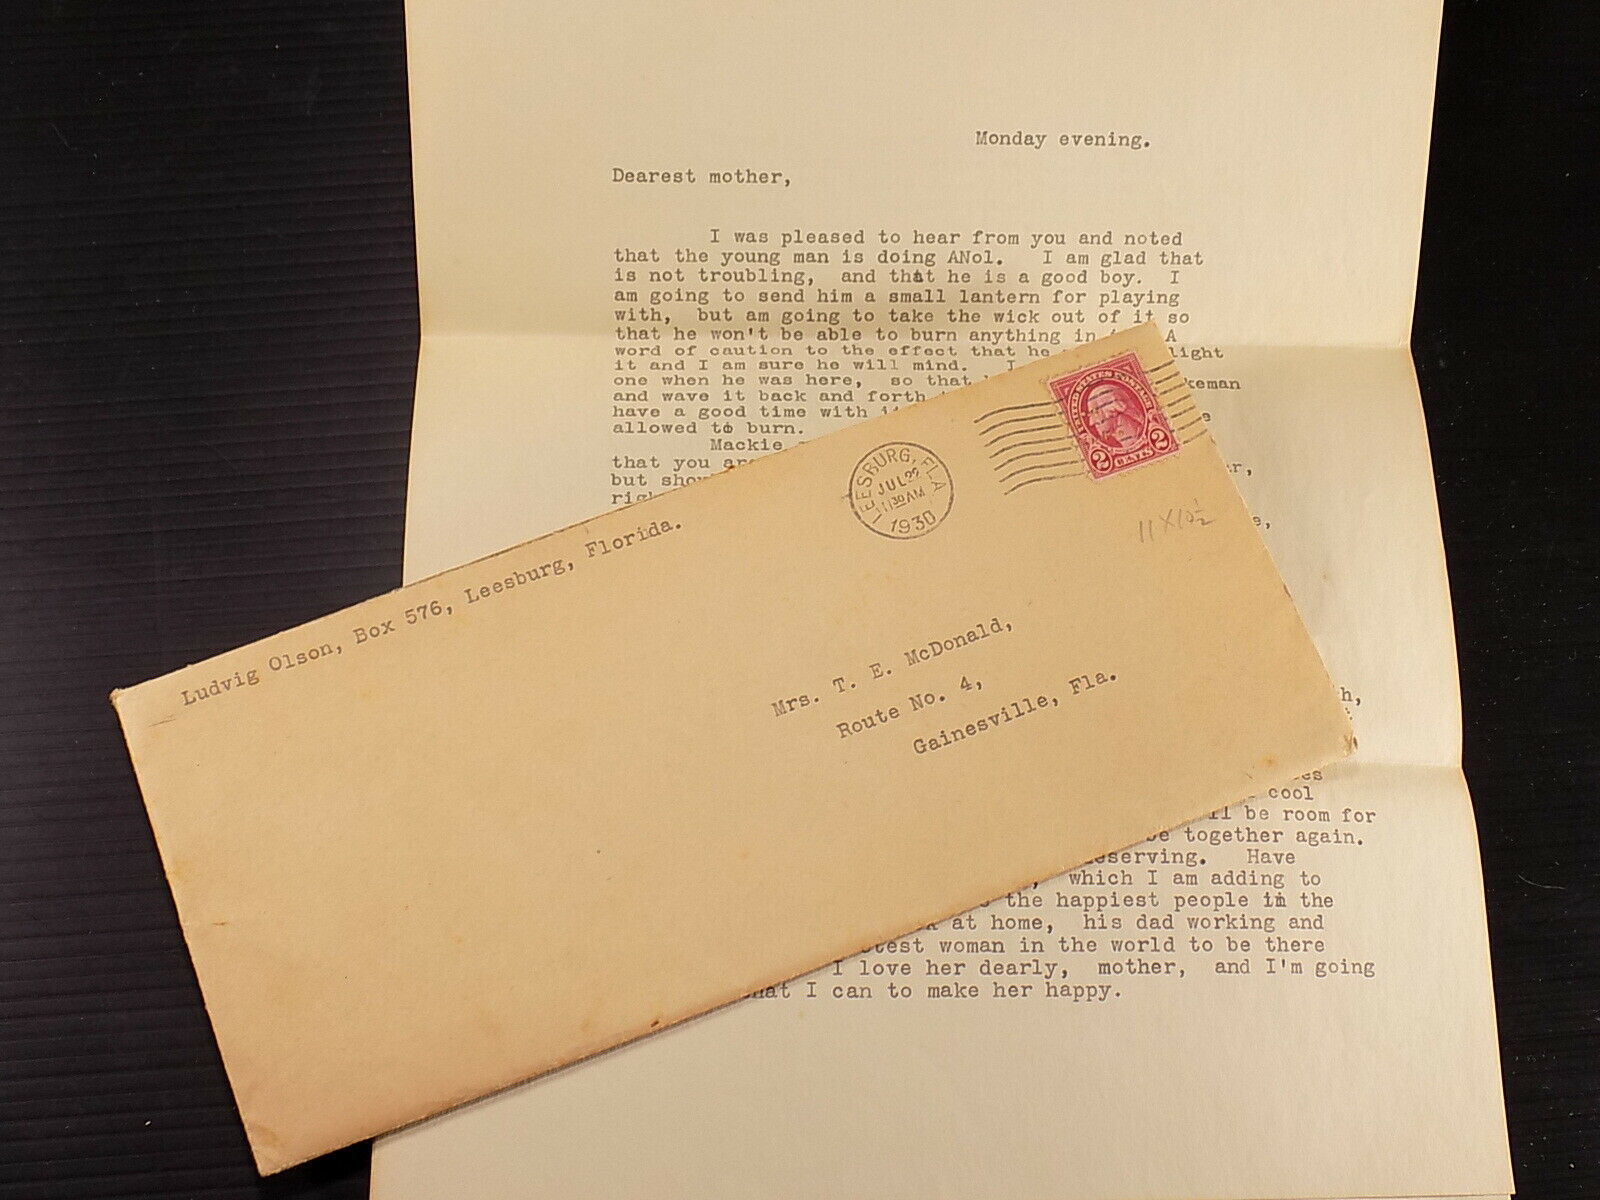 Monday evening.
Dearest mother,
I was pleased to hear from you and noted
that the young man is doing ANol. I am glad that
is not troubling, and that he is a good boy. I
am going to send him a small lantern for playing
with, but am going to take the wick out of it so
that he won't be able to burn anything in A
word of caution to the effect that he light
it and I am sure he will mind. I
one when he was here, so that
and wave it back and forth
have a good time with
allowed to burn.
Mackie
that you are
but
UNITED STATES POSTAGE
2 CENTS 2
LEESBURG, FLA.
JUL 22
11 30 AM
1930
11 X 10 1/2
Ludvig Olson, Box 576, Leesburg, Florida.
Mrs. T. E. McDonald,
Route No. 4,
Gainesville, Fla.
cool
be room for
together again.
Have
which I am adding to
the happiest people in the
at home, his dad working and
woman in the world to be there
I love her dearly, mother, and I'm going
I can to make her happy.